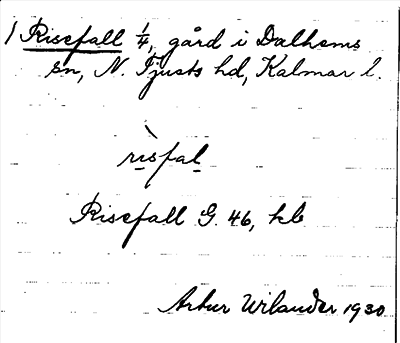 1 Risefall 1/4, gård i Dalhems
sn, N. Tjusts hd, Kalmar l.
rìsfal
Risefall G. 46, kb
Artur Wilander 1930